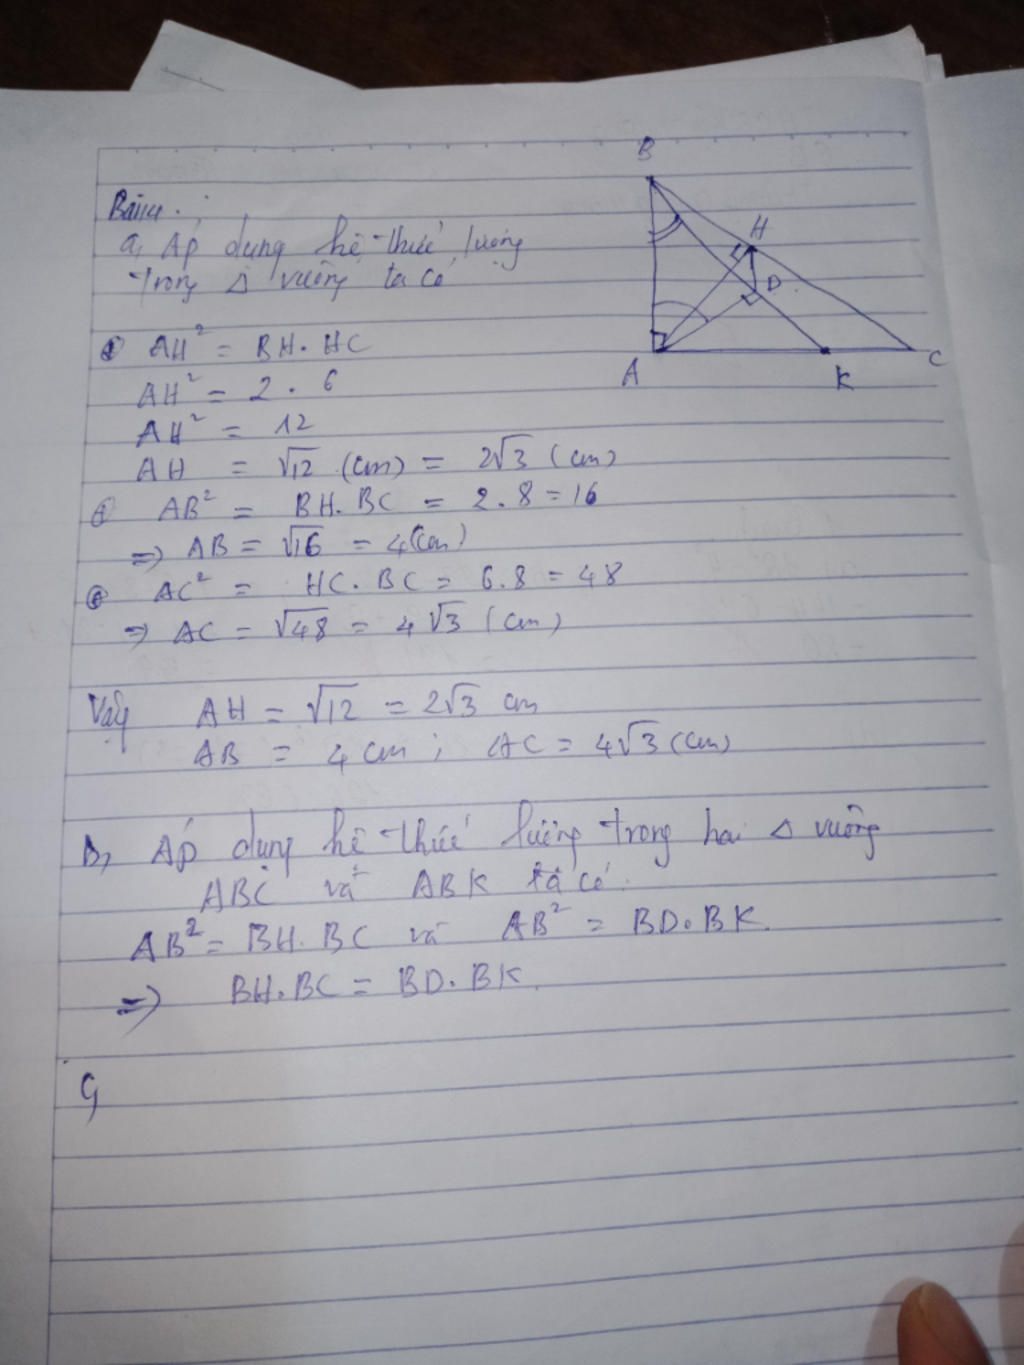 B
H
D
A
K
C
Bài 4:
a, Áp dụng hệ thức lượng
trong Δ vuông ta có
AH² = BH. HC
AH² = 2 . 6
AH² = 12
AH = √12 (cm) = 2√3 (cm)
AB² = BH. BC = 2.8 = 16
=> AB = √16 = 4(cm)
AC² = HC. BC = 6.8 = 48
=> AC = √48 = 4√3 (cm)
Vậy AH = √12 = 2√3 cm
AB = 4 cm ; AC = 4√3 (cm)
B, Áp dụng hệ thức lượng trong hai Δ vuông
ABC và ABK ta có:
AB² = BH. BC và AB² = BD. BK.
=> BH. BC = BD. BK.